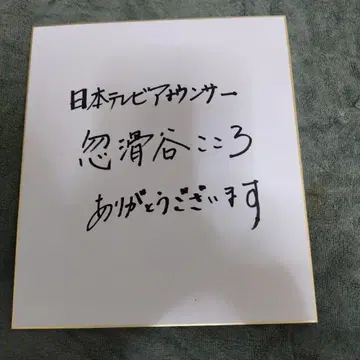 日本テレビアナウンサー
忽滑谷こころ
ありがとうございます